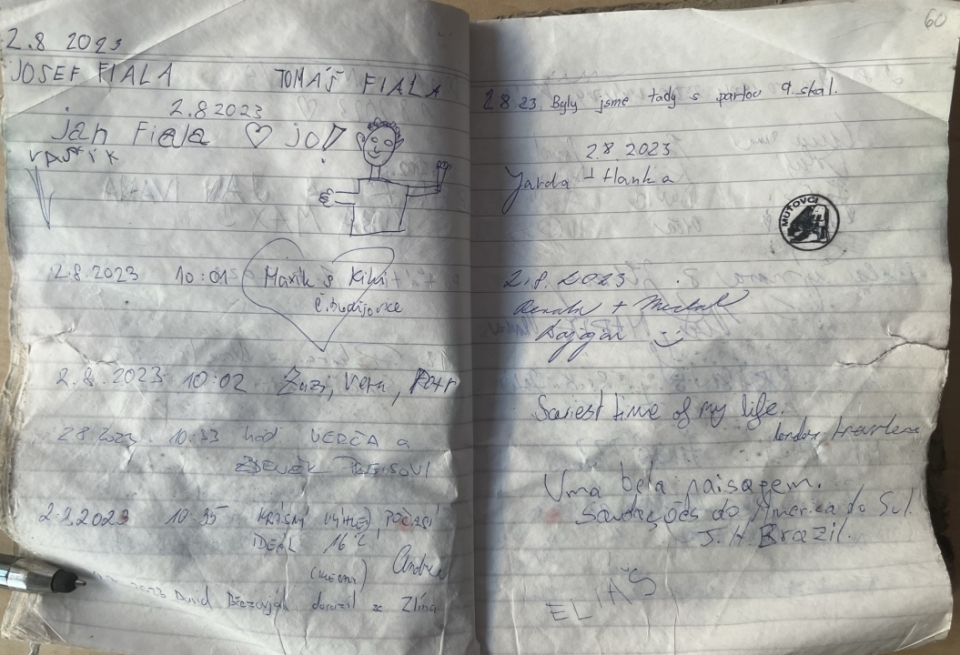 2.8 2023
JOSEF FIALA TOMÁŠ FIALA
2.8.2023
Jan Fiala ♡ jo!
VAŠÍK
2.8.2023 10:01 Maxík s Kiki
č. budějovice
2.8.2023 10:02 Zuzi, Věra, Petr
2.8.2023 10:33 hod VERČA a
ZDENĚK
2.8.2023 10:35 KRÁSNÝ VÝHLED POČASÍ
IDEÁL 16°C
Andrea
David dorazil ze Zlína
60
2 8 23 Byly jsme tady s partou 9 skal.
2.8.2023
Jarda + Hanka
MUTOVCI
2.8.2023
Renata + Michal
:-)
Sariest time of my life.
london travelers
Uma bela paisagem.
Saudações do America do Sul.
J. H. Brazil.
ELIÁŠ